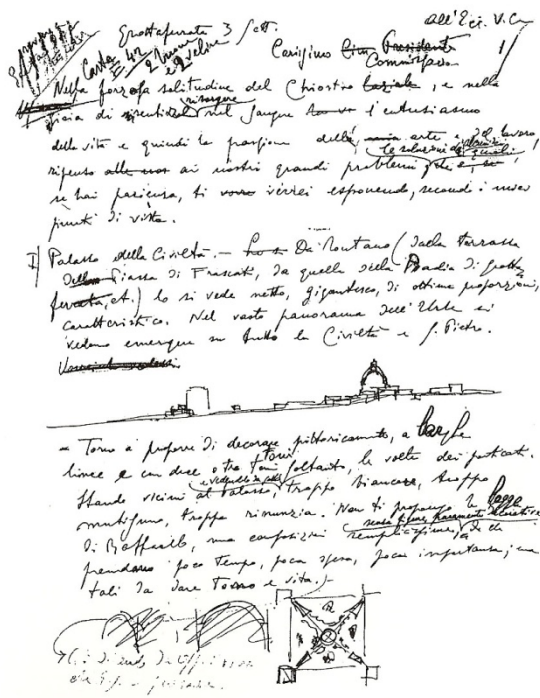 Grottaferrata 3 Sett.
all'Ecc. V. C
Carta
E. 42
2 Buone
e 2 veline
Carissimo Cini Presidente
Commissario
Nella forzosa solitudine del Chiostro laziale, e nella
gioia di risorgere nel sangue l'entusiasmo
della vita e quindi la passione della mia arte e del lavoro,
le soluzioni di alcuni
ripenso ai nostri grandi problemi, che
se hai pazienza, ti verrei esponendo, secondo i miei
punti di vista.
I) Palazzo della Civiltà. — Da lontano (dalla terrazza
della Piazza di Frascati, da quella della Badia di Grotta
ferrata, ect.) lo si vede netto, gigantesco, di ottime proporzioni,
caratteristico. Nel vasto panorama dell'Urbe si
vedono emergere su tutto la Civiltà e S. Pietro.
= Torno a proporre di decorare pittoricamente, a larghe
linee e con due o tre toni soltanto, le volte dei porticati.
Stando vicini al Palazzo, troppo biancore, troppo
mutismo, troppa rinunzia. Non ti propongo le logge
di Raffaello, ma composizioni semplicissime, da
prendano poco tempo, poca spesa, poca importanza, ma
tali da dare tono e vita.